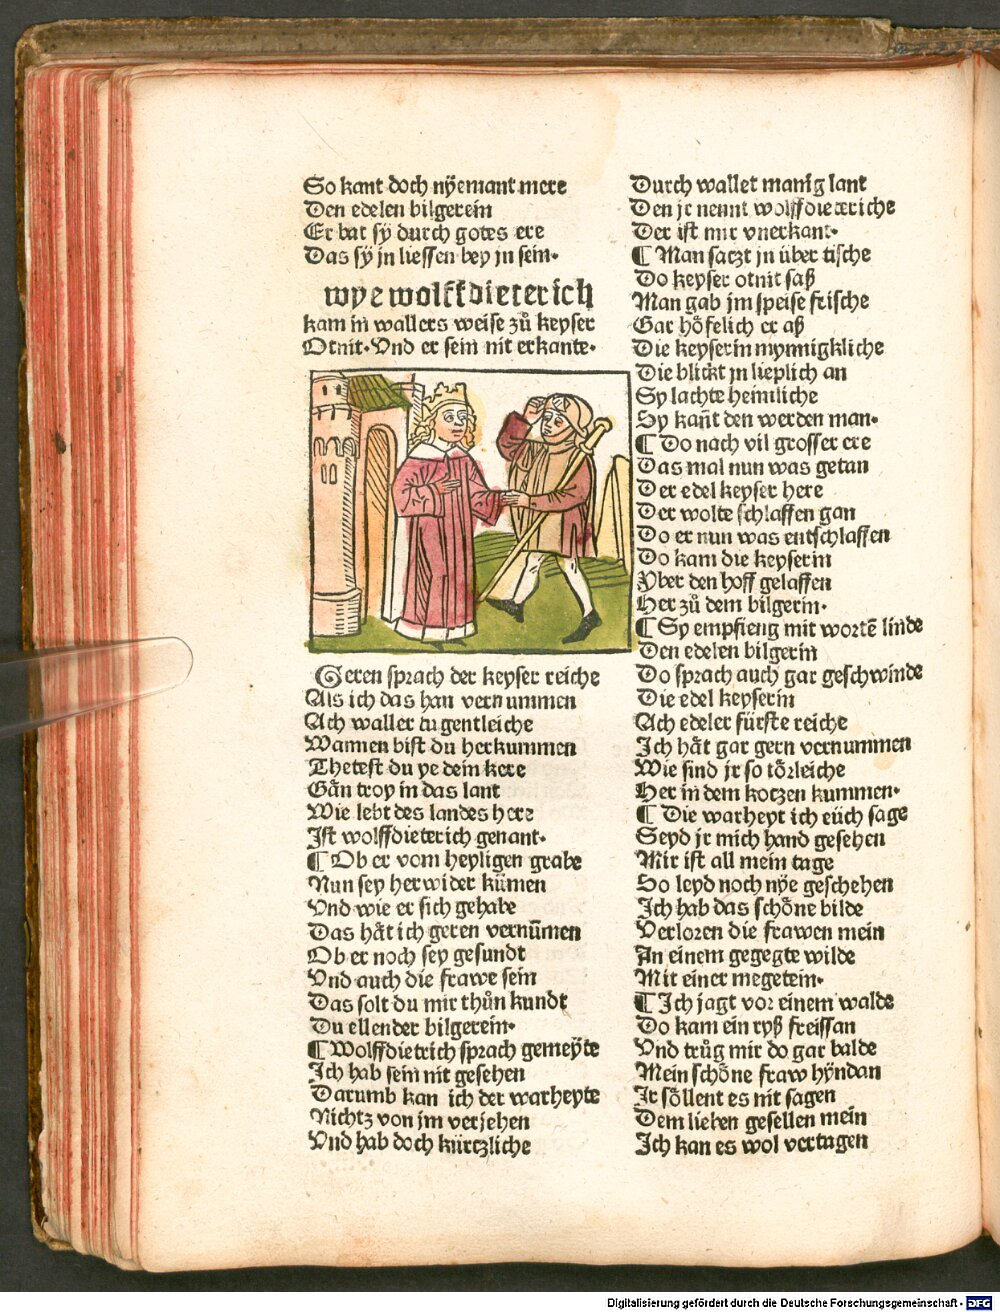 So kant doch nÿemant mere
Den edelen bilgerein
Er bat sÿ durch gotes ere
Das sÿ jn liessen bey jn sein.
wye wolffdieterich
kam in wallers weise zů keyser
Otnit. Vnd er sein nit erkante.
Geren sprach der keyser reiche
Als ich das han vernummen
Ach waller tugentleiche
Wannen bist du herkummen
Thetest du ye dein kere
Găn troy in das lant
Wie lebt des landes here
Jst wolffdieterich genant.
¶ Ob er vom heyligen grabe
Nun sey herwider kümen
Vnd wie er sich gehabe
Das hăt ich geren vernūmen
Ob er noch sey gesundt
Vnd auch die frawe sein
Das solt du mir thůn kundt
Du ellender bilgerein.
¶ Wolffdietrich sprach gemeÿte
Jch hab sein nit gesehen
Darumb kan ich der warheyte
Nichtz von jm verjehen
Vnd hab doch kürtzliche
Durch wallet manig lant
Den jr nennt wolffdietriche
Der ist mir vnerkant.
¶ Man satzt jn über tische
Do keyser otnit saß
Man gab jm speise frische
Gar hőfelich er aß
Die keyserin mynnigkliche
Die blickt jn lieplich an
Sy lachte heimliche
Sy kañt den werden man.
¶ Do nach vil grosser ere
Das mal nun was getan
Der edel keyser here
Der wolte schlaffen gan
Do er nun was entschlaffen
Do kam die keyserin
Yber den hoff gelaffen
Her zů dem bilgerin.
¶ Sy empfieng mit wortē linde
Den edelen bilgerin
Do sprach auch gar geschwinde
Die edel keyserin
Ach edeler fürste reiche
Jch hăt gar gern vernummen
Wie sind jr so tőrleiche
Her in dem kotzen kummen.
¶ Die warheyt ich eüch sage
Seyd jr mich hand gesehen
Mir ist all mein tage
So leyd noch nÿe geschehen
Jch hab das schőne bilde
Verloren die frawen mein
In einem gegegte wilde
Mit einer megetein.
¶ Jch jagt vor einem walde
Do kam ein ryß freissan
Vnd trůg mir do gar balde
Mein schőne fraw hÿndan
Jr sőllent es nit sagen
Dem lieben gesellen mein
Jch kan es wol vertagen
Digitalisierung gefördert durch die Deutsche Forschungsgemeinschaft - DFG